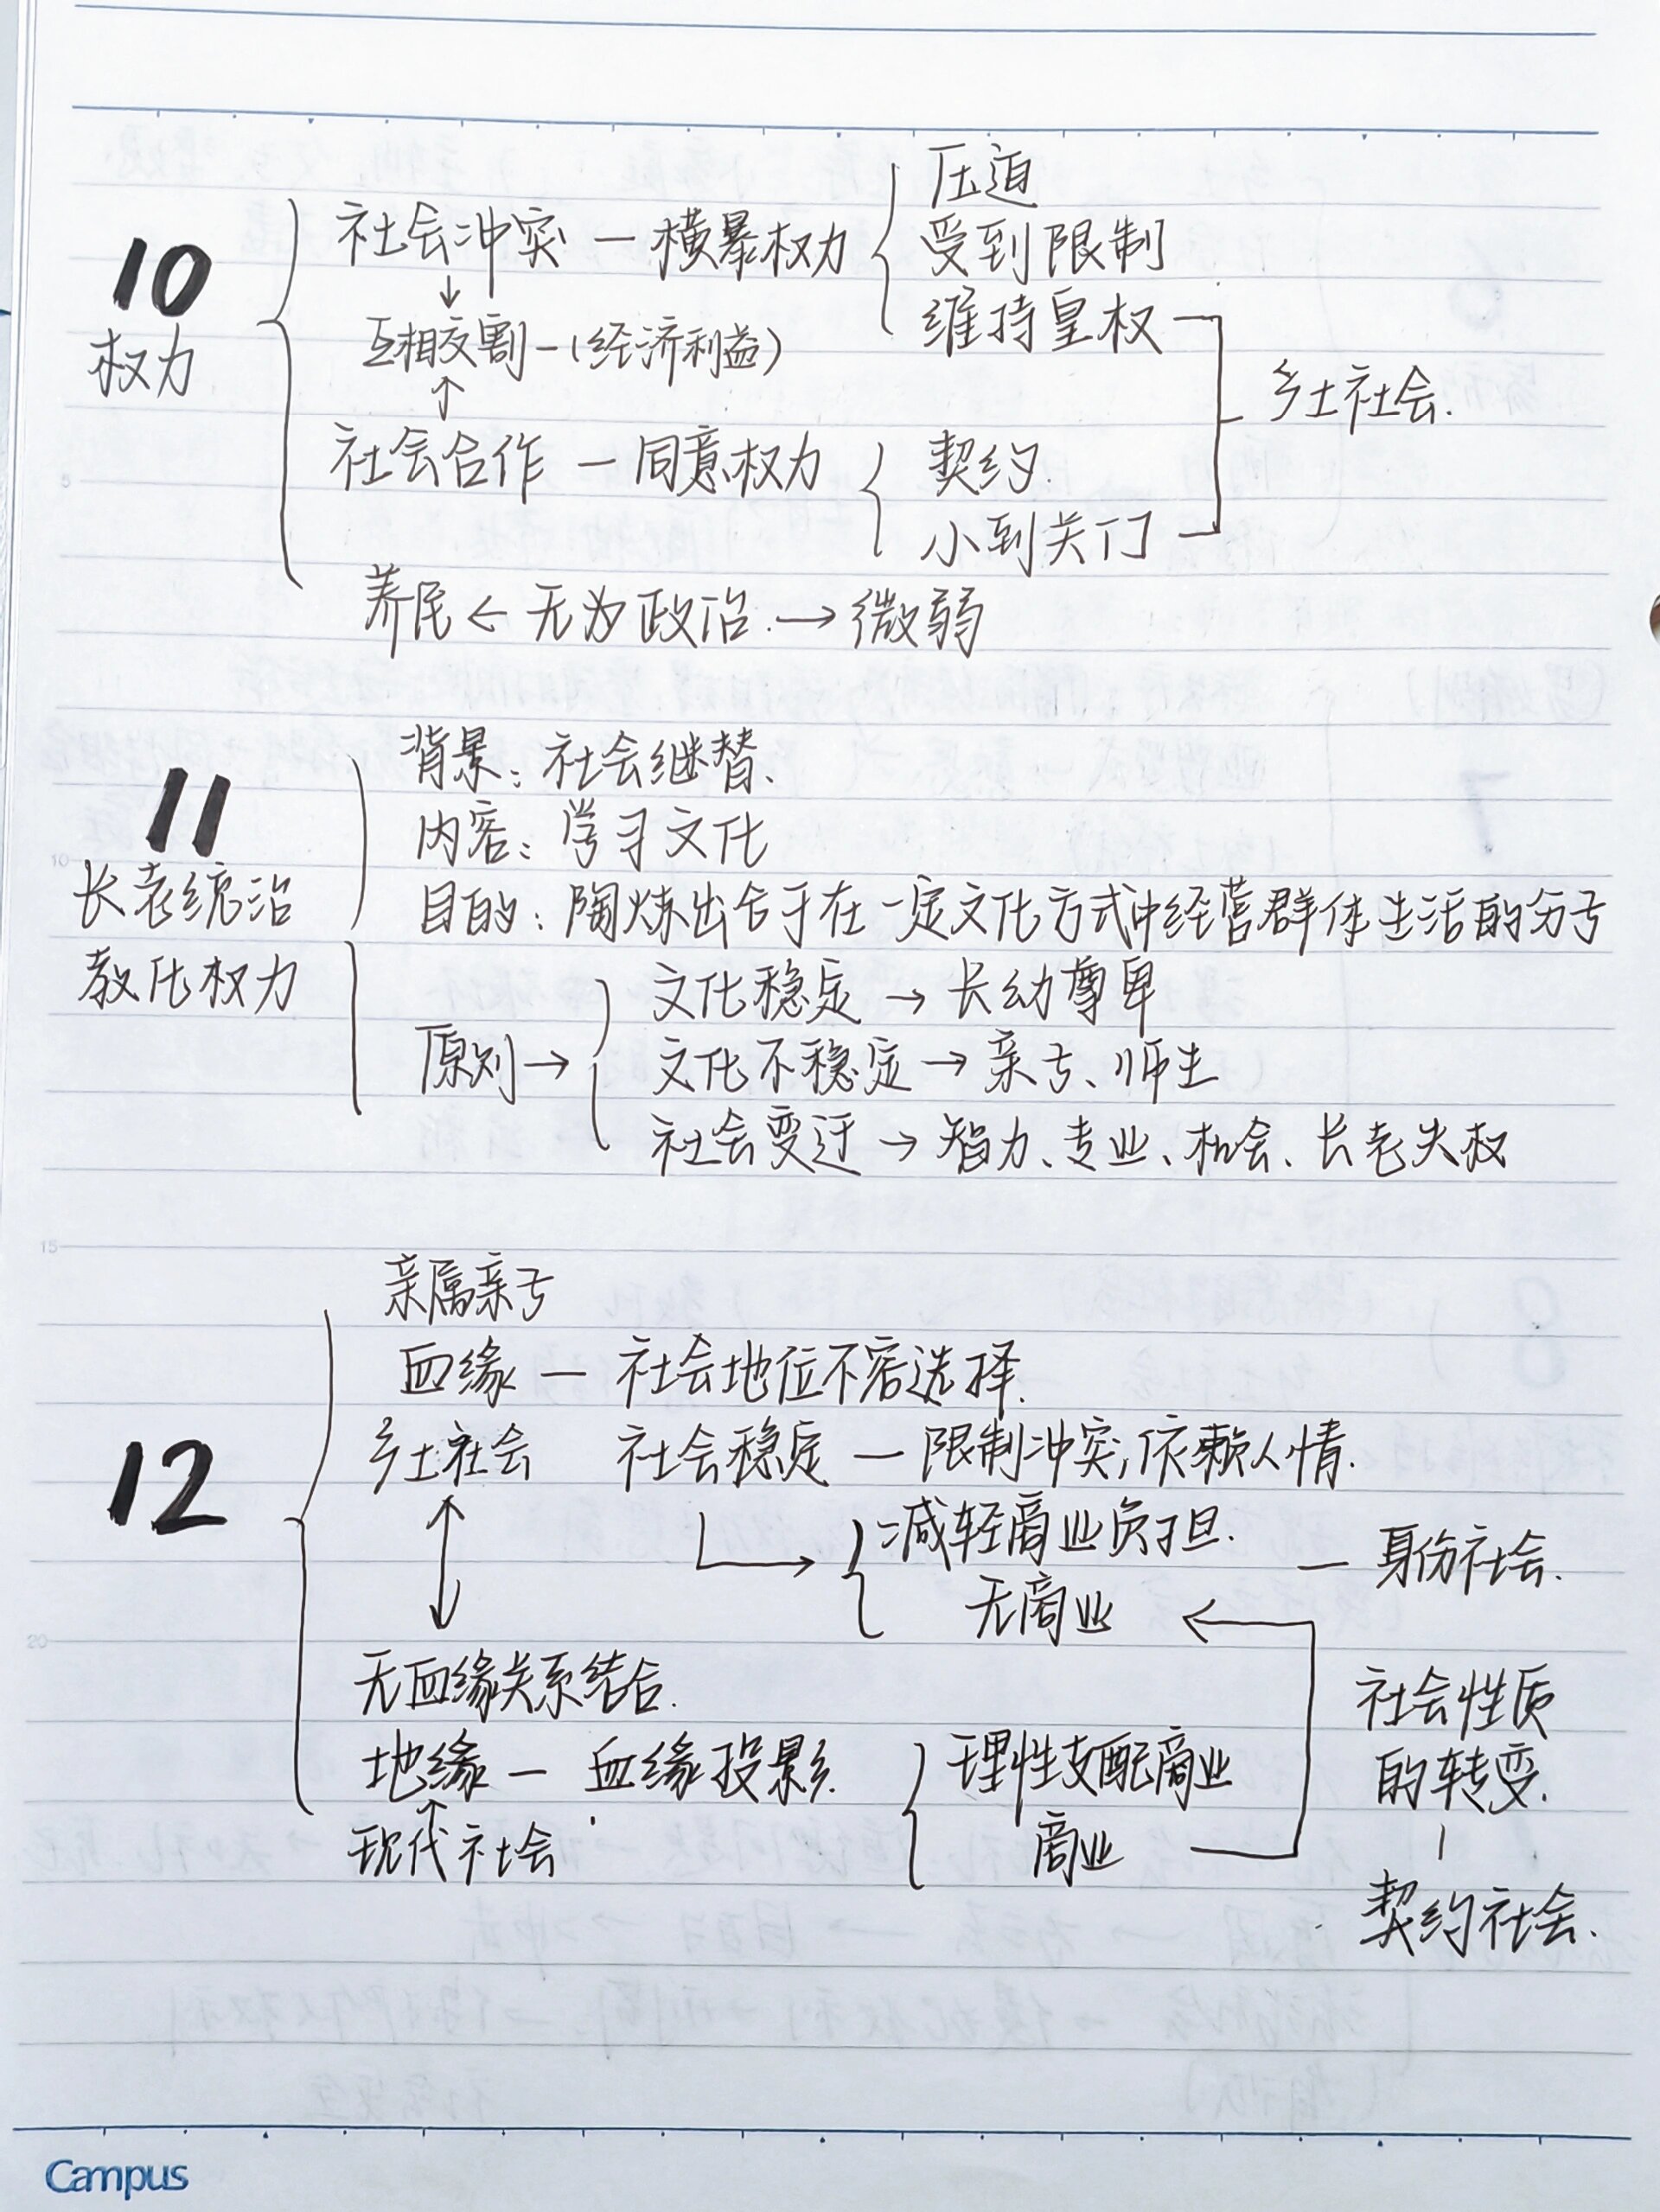 10
权力
社会冲突 — 横暴权力
压迫
受到限制
维持皇权
↓
互相交割 — (经济利益)
↑
乡土社会.
社会合作 — 同意权力
契约.
小到关门
养民 ← 无为政治. → 微弱
11
长老统治
教化权力
背景: 社会继替.
内容: 学习文化
目的: 陶炼出合于在一定文化方式中经营群体生活的分子
原则 →
文化稳定 → 长幼尊卑
文化不稳定 → 亲子、师生
社会变迁 → 智力、专业、机会、长老失权
12
亲属亲子
血缘 — 社会地位不容选择.
乡土社会 社会稳定 — 限制冲突,依赖人情.
减轻商业负担. — 身份社会.
无商业
无血缘关系结合.
地缘 — 血缘投影.
↑
现代社会
理性支配商业
商业
社会性质
的转变.
契约社会.
Campus